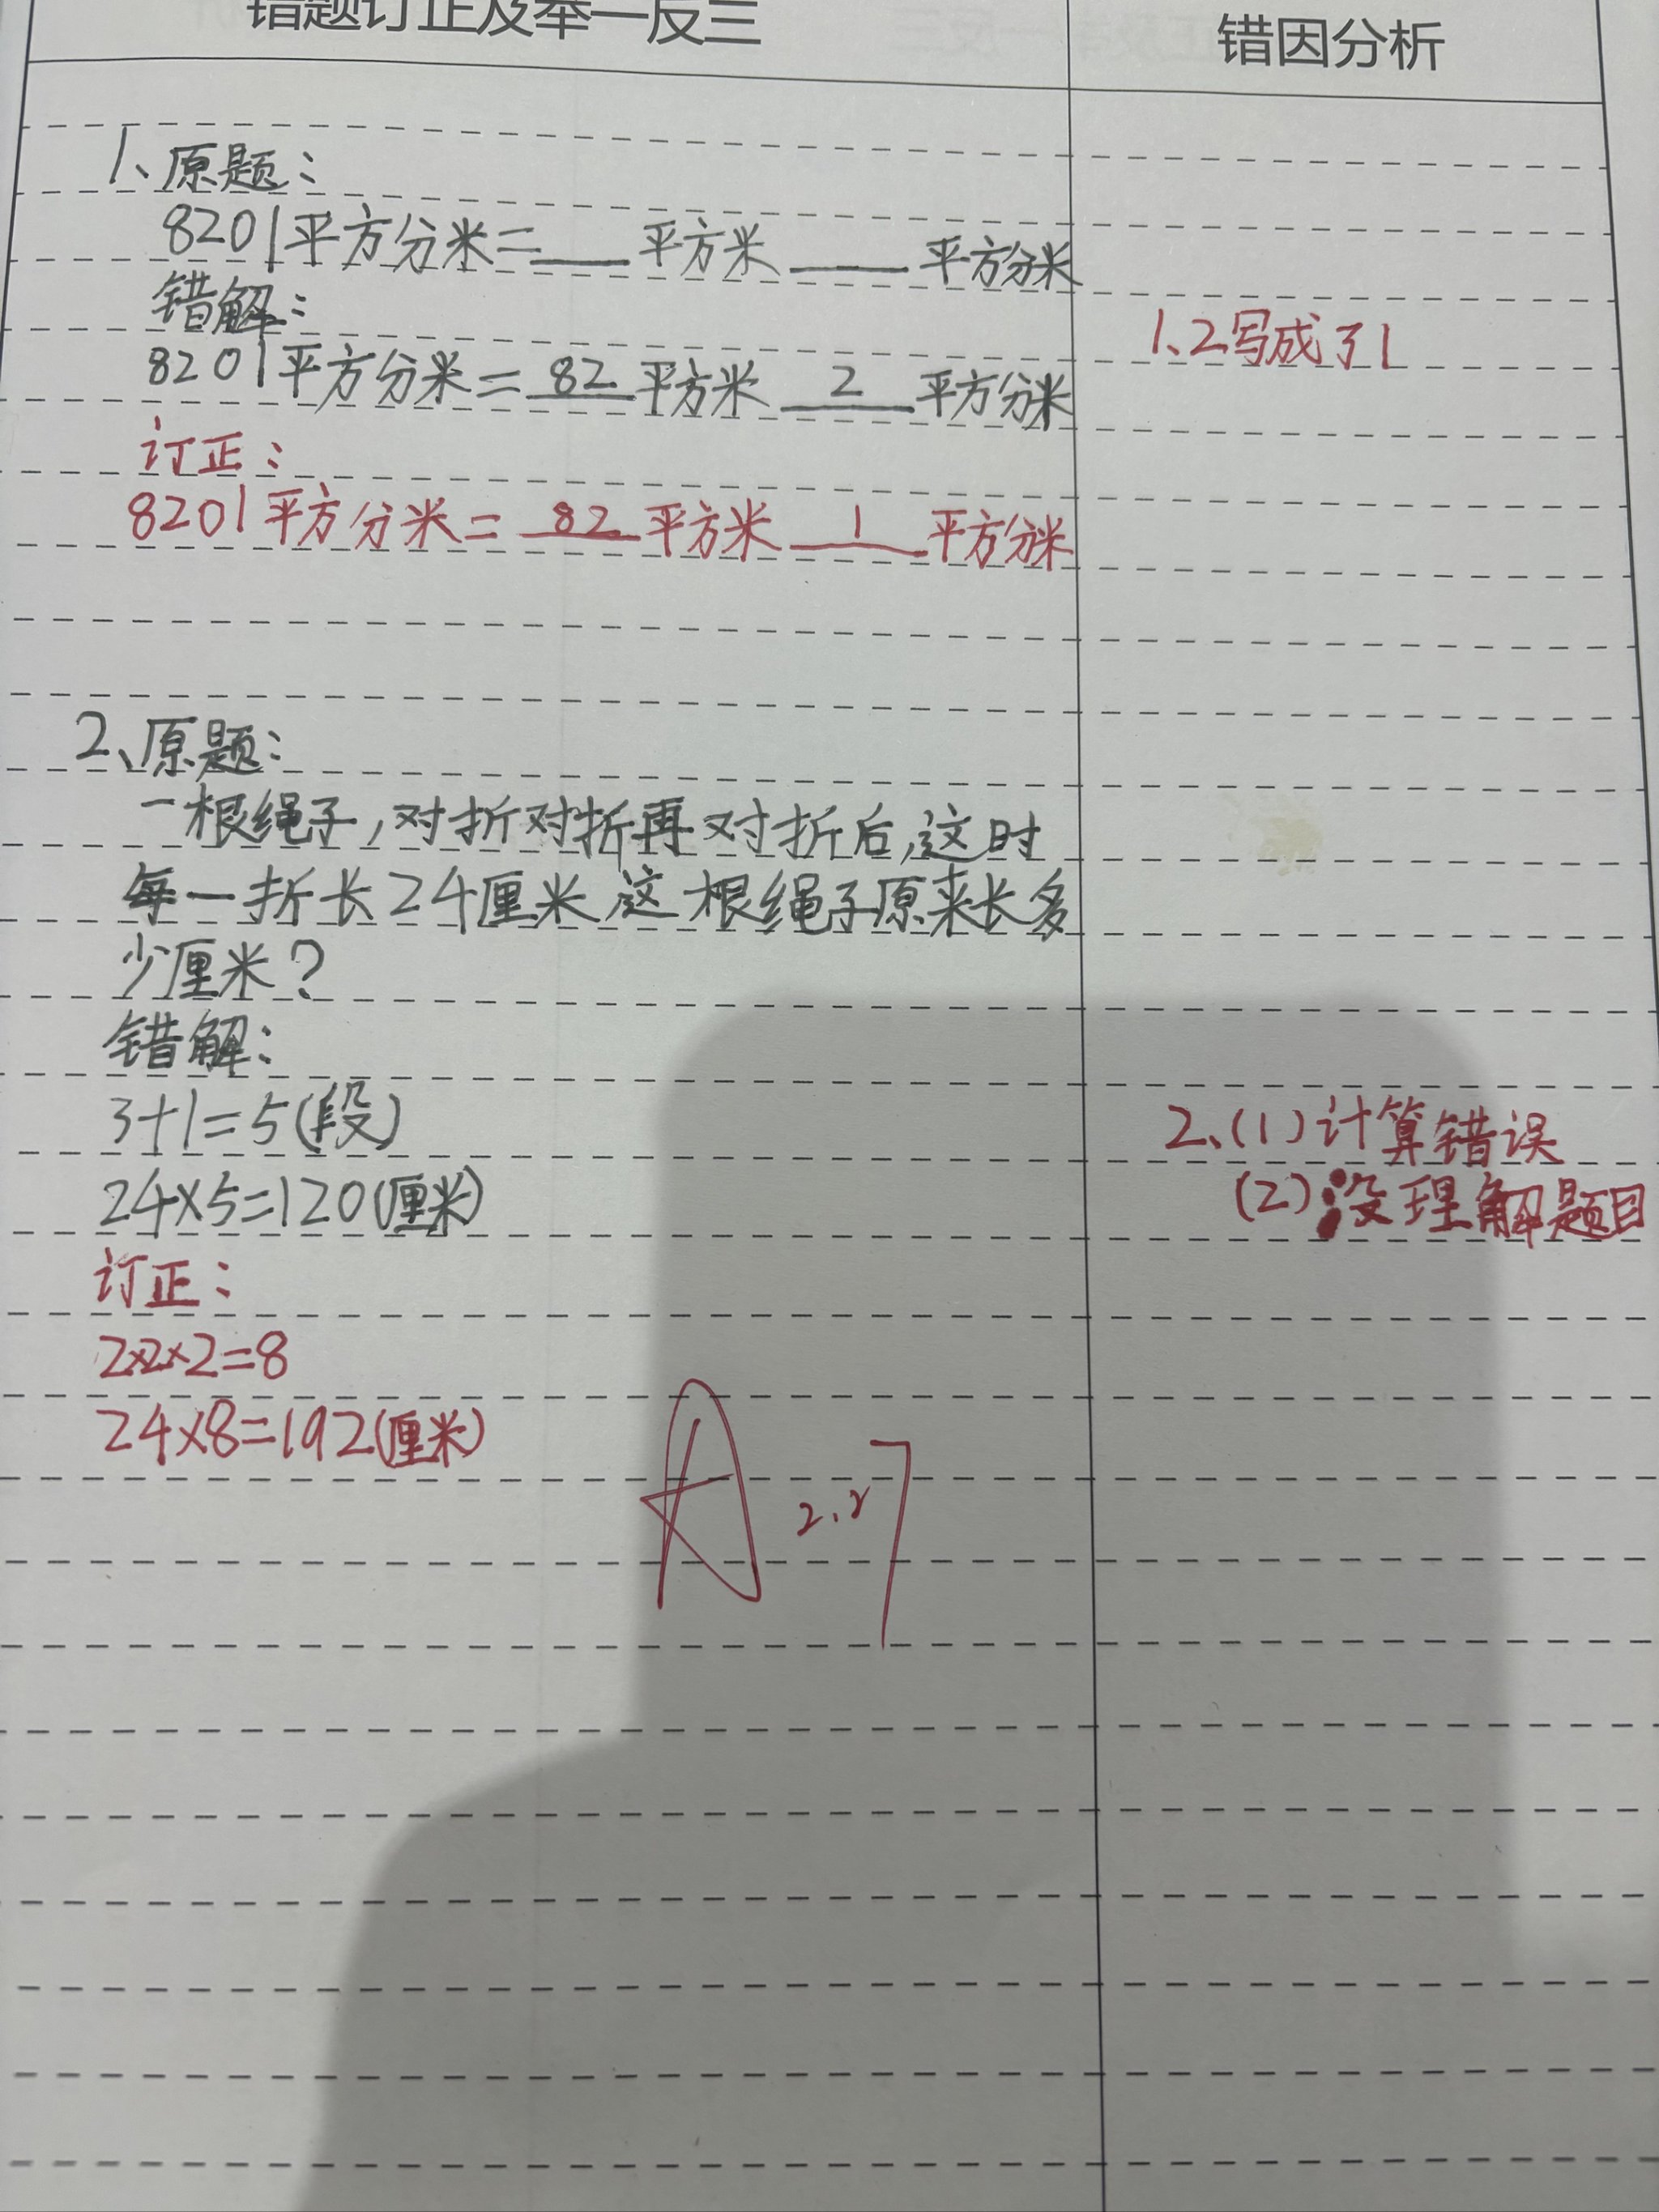 错题订正及举一反三
错因分析
1、原题：
8201平方分米=___平方米___平方分米
错解：
8201平方分米=82平方米2平方分米
1、2写成了1
订正：
8201平方分米=82平方米1平方分米
2、原题：
一根绳子,对折对折再对折后,这时
每一折长24厘米这根绳子原来长多
少厘米?
错解：
3+1=5(段)
2、(1)计算错误
24×5=120(厘米)
(2)没理解题目
订正：
2×2×2=8
24×8=192(厘米)
A